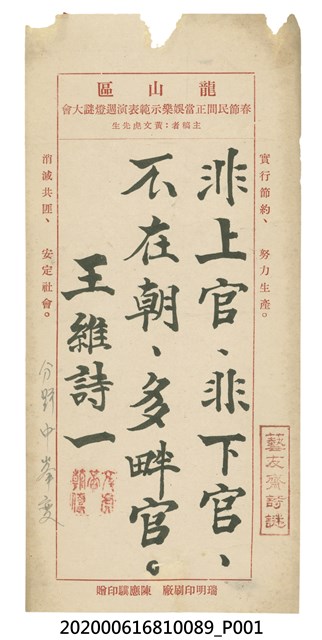 龍山區
春節民間正當娛樂示範表演迴燈謎大會
主稿者：黃文虎先生
實行節約、　努力生產。
非上官、非下官、
不在朝、多畔官。
王維詩一
消滅共匪、　安定社會。
分野中峯變
藝友齋詩謎
瑞明印刷廠　陳應麟印贈
202000616810089_P001